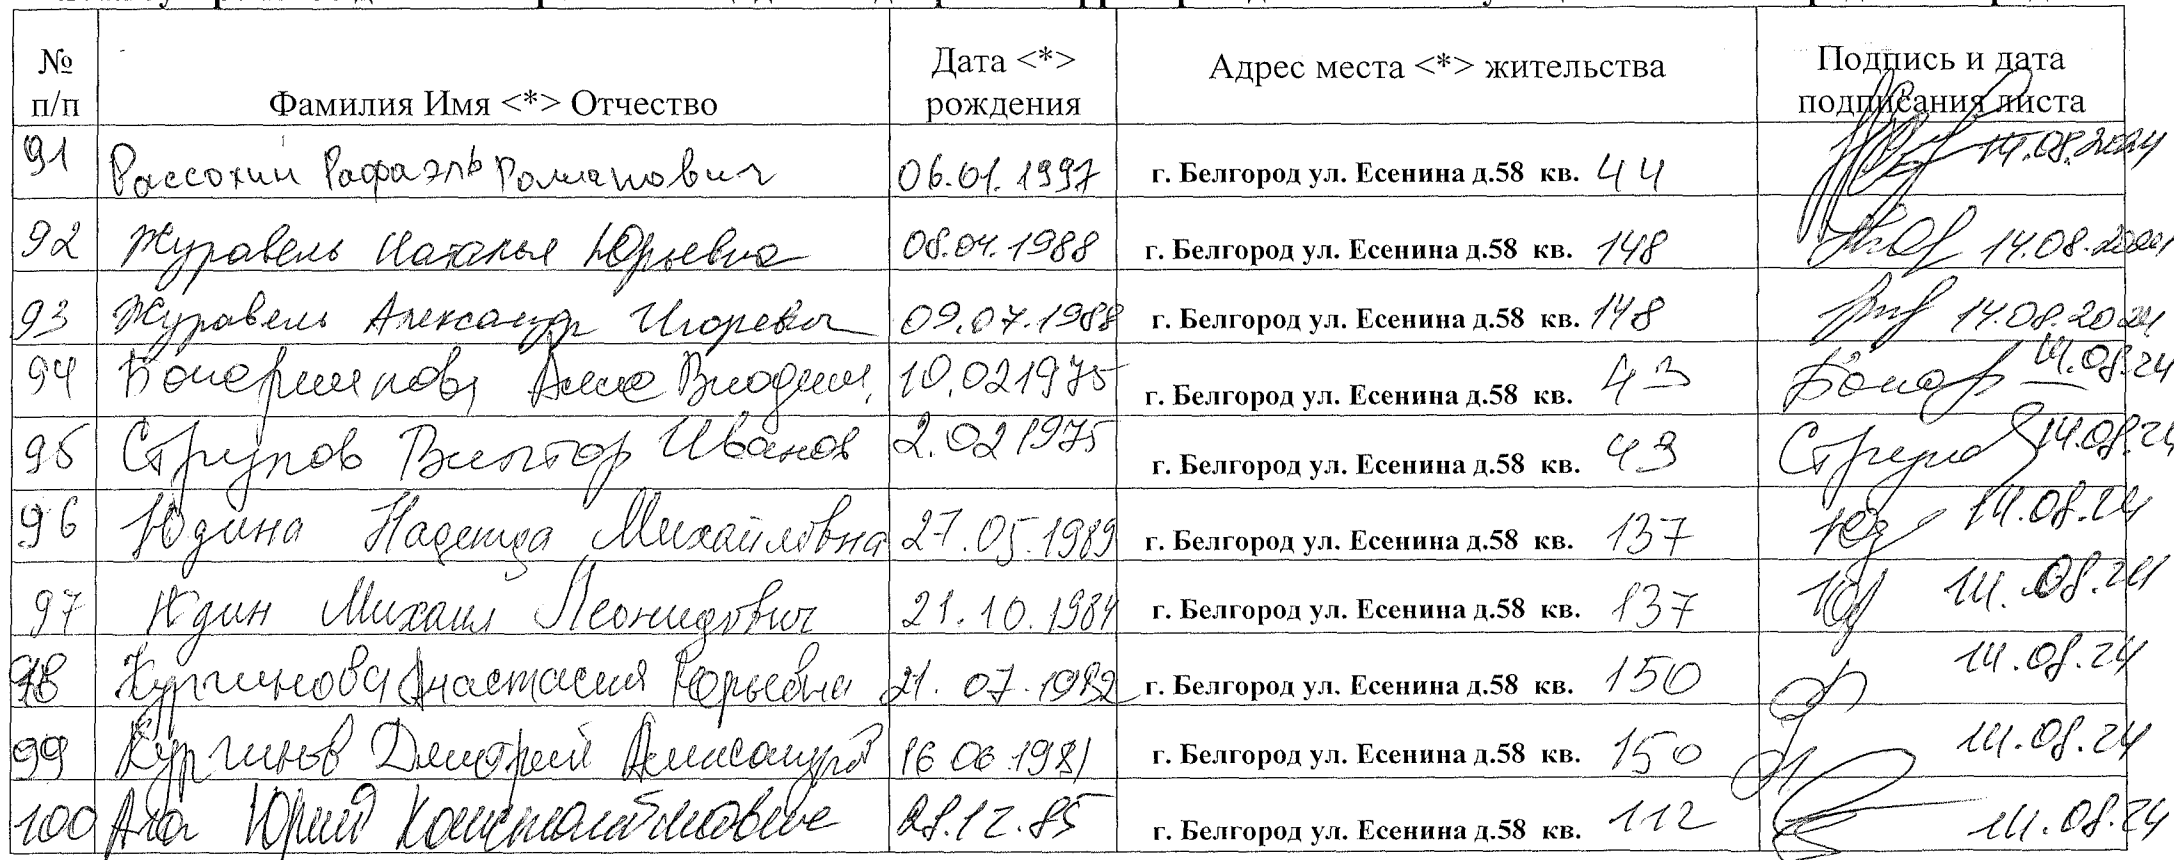 № п/п Фамилия Имя <*> Отчество Дата <*> рождения Адрес места <*> жительства Подпись и дата подписания листа
91 Рассохин Рафаэль Романович 06.01.1997 г. Белгород ул. Есенина д.58 кв. 44 14.08.2024
92 Журавель Наталья Юрьевна 08.04.1988 г. Белгород ул. Есенина д.58 кв. 148 14.08.2024
93 Журавель Александр Игоревич 09.07.1988 г. Белгород ул. Есенина д.58 кв. 148 14.08.2024
94 10.02 1975 г. Белгород ул. Есенина д.58 кв. 43 14.08.24
95 Струков Виктор Иванов 2.02 1975 г. Белгород ул. Есенина д.58 кв. 43 14.08.24
96 Юдина Надежда Михайловна 27.05.1989 г. Белгород ул. Есенина д.58 кв. 137 14.08.24
97 Юдин Михаил Леонидович 21.10.1984 г. Белгород ул. Есенина д.58 кв. 137 14.08.24
98 Анастасия Юрьевна 21.07.1982 г. Белгород ул. Есенина д.58 кв. 150 14.08.24
99 Дмитрий 16 06 1981 г. Белгород ул. Есенина д.58 кв. 150 14.08.24
100 Юрий Константинович 28.12.85 г. Белгород ул. Есенина д.58 кв. 112 14.08.24